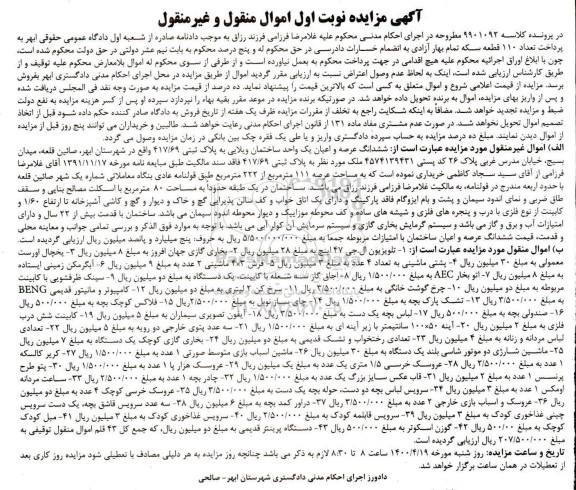 آگهی مزایده نوبت اول اموال منقول و غیرمنقول
در پرونده کلاسه ۹۹۰۱۰۹۲ مطروحه در اجرای احکام مدنی محکوم علیه غلامرضا فرزامی فرزند رزاق به موجب دادنامه صادره از شعبه اول دادگاه عمومی حقوقی ابهر به
پرداخت تعداد ۱۱۰ قطعه سکه تمام بهار آزادی به انضمام خسارات دادرسی در حق محکوم له و پنج درصد محکوم به بابت نیم عشر دولتی در حق دولت محکوم شده است،
چون با ابلاغ اوراق اجرائیه محکوم علیه هیچ اقدامی در جهت پرداخت محکوم به بعمل نیاورده است و از طرفی از سوی محکوم له اموال بلامعارض محکوم علیه توقیف و از
طریق کارشناس ارزیابی شده است، اینک به لحاظ عدم وصول اعتراض نسبت به ارزیابی مقرر گردید اموال از طریق مزایده در محل اجرای احکام مدنی دادگستری ابهر بفروش
برسد. مزایده از قیمت اعلامی شروع و اموال متعلق به کسی است که بالاترین قیمت را پیشنهاد نماید. ده درصد از قیمت مزایده به صورت وجه نقد فی المجلس دریافت شده
و پس از واریز بهای مزایده، اموال به برنده تحویل داده خواهد شد. در صورتیکه برنده مزایده در موعد مقرر بقیه بهاء را نپردازد سپرده او پس از کسر هزینه مزایده به نفع دولت
ضبط و مزایده تجدید خواهد شد. مضافاً به اینکه شکایت راجع به تخلف از مقررات مزایده ظرف یک هفته از تاریخ فروش به دادگاه صادر کننده حکم داده شود قبل از اتخاذ
تصمیم اموال تحویل خواهد شد. در صورت عدم مشتری مفاد ماده ۱۳۱ از قانون اجرای احکام مدنی رعایت خواهد شد. طالبین و خریداران می توانند پنج روز قبل از مزایده
از اموال دیدن نمایند. مبلغ ده درصد مزایده به حساب سپرده دادگستری واریز و یا طی یک فقره چک بین بانکی در زمان مزایده وصول می گردد.
الف) اموال غیرمنقول مورد مزایده عبارت است از: ششدانگ عرصه و اعیان یک واحد ساختمان ویلایی به پلاک ثبتی ۴۱۷/۶۹ واقع در شهرستان ابهر، صائین قلعه، میدان
بسیج، خیابان مدرس غربی پلاک ۲۶ کد پستی ۴۵۷۴۱۳۹۴۳۱ ملک مورد نظر به پلاک ثبتی ۴۱۷/۶۹ فاقد سند مالکیت طبق مبایعه نامه مورخه ۱۳۹۱/۱۱/۱۷ آقای غلامرضا
فرزامی از آقای سید سجاد کاظمی خریداری نموده است که به مساحت ۱۱۱ مترمربع از ۲۲۲ مترمربع طبق قولنامه عادی بنگاه معاملاتی شماره یک شهر صائین قلعه
با حدود اربعه مندرج در قولنامه، به مالکیت غلامرضا فرزامی فرزند
ساختمان در یک طبقه حدوداً به مساحت ۸۰ مترمربع با اسکلت مصالح بنایی و سقف
طاق ضربی و نمای اندود سیمان و پشت و بام ایزوگام فاقد پارکینگ و دارای یک اتاق خواب و کف سالن پذیرایی گچ و خاک و دیوار و گچ و کاشی آشپزخانه تا ارتفاع ۱/۶۰ و
کابینت از نوع فلزی با درب و پنجره های فلزی و شیشه های ساده و کف محوطه موزاییک و دیوار محوطه اندود سیمان می باشد. ساختمان با قدمت بیش از ۲۲ سال و دارای
امتیازات آب و برق و گاز می باشد و سیستم گرمایش بخاری گازی و سیستم سرمایش آن کولر آبی می باشد. با توجه به موارد فوق الذکر و بررسی تمامی جوانب و معاینه محلی
و قدمت، قیمت ششدانگ عرصه و اعیان ساختمان با امتیازات مربوطه جمعا به مبلغ ۵/۵۰۰/۰۰۰/۰۰۰ ریال به حروف: پنج میلیارد و پانصد میلیون ریال ارزیابی گردیده است.
ب) اموال منقول مورد مزایده عبارت است از: ۱- تلویزیون ال جی ۲۷ اینچ به مبلغ ۲۸ میلیون ریال ۲- بخاری گازی جهان افروز به مبلغ ۸ میلیون ریال ۳- یخچال اورست
معمولی به مبلغ ۳۰ میلیون ریال ۴- پشتی ماشینی به تعداد ۴ عدد به مبلغ ۴ میلیون ریال ۵- فرش ۶ متری ماشینی سه عدد به مبلغ ۹ میلیون ریال ۶- آبگرمکن زمینی ایستاده
به مبلغ ۸ میلیون ریال ۷- اتو بخار AEC به مبلغ ۱/۵۰۰/۰۰۰ ریال ۸- اجاق گاز سه شعله با کابینت، یک دستگاه به مبلغ دو میلیون ریال ۹- سینک ظرفشویی با کابینت
مربوطه به مبلغ دو میلیون ریال ۱۰- چرخ گوشت خانگی به مبلغ ۳/۵۰۰/۰۰۰ ریال ۱۱- سرخ کن ۲ لیتری به مبلغ دو میلیون ریال ۱۲- کامپیوتر و مانیتور قدیمی BENG
به مبلغ ۳/۵۰۰/۰۰۰ ریال ۱۳- تشک پارک بچه به مبلغ ۱/۵۰۰/۰۰۰ ریال ۱۴- چای ساز نوبل به مبلغ ۲/۵۰۰/۰۰۰ ریال ۱۵- فلاکس کوچک بچه به مبلغ ۵۰۰/۰۰۰ ریال
۱۶- صندلی بچه به مبلغ ۵۰۰/۰۰۰ ریال ۱۷- لباس بچه یک دست به مبلغ ۳/۵۰۰/۰۰۰ ریال ۱۸- آیفون تصویری سیماران به مبلغ ۵ میلیون ریال ۱۹- کابینت شش درب
فلزی به مبلغ ۲ میلیون ریال ۲۰- آینه ۵۰×۱۰۰ سانتیمتر با زیر آینه ای به مبلغ ۱/۵۰۰/۰۰۰ ریال ۲۱- سه عدد پتوی خارجی دو رویه به مبلغ ۵ میلیون ریال ۲۲- تعدادی
لباس مردانه و زنانه به مبلغ ۴ میلیون ریال ۲۳- تعدادی رختخواب و تشک قدیمی به مبلغ دو میلیون ریال ۲۴- بخاری گازی کوچک یک دستگاه به مبلغ ۷ میلیون ریال
۲۵- ماشین شارژی دو موتور شاسی بلند یک دستگاه به مبلغ ۳۰ میلیون ریال ۲۶- ماشین اسباب بازی متوسط صورتی ۱ عدد به مبلغ ۱/۵۰۰/۰۰۰ ریال ۲۷- کریر کالسکه
۱ عدد به مبلغ ۳/۵۰۰/۰۰۰ ریال ۲۸- عروسک خرسی ۱/۵ متری یک عدد به مبلغ یک میلیون ریال ۲۹- عروسک هزار پا ۱ عدد به مبلغ ۱/۵۰۰/۰۰۰ ریال ۳۰- پتو طرح
پرنسس ۱ عدد به مبلغ ۲ میلیون ریال ۳۱- قاب عکس سایز بزرگ یک عدد به مبلغ ۱/۵۰۰/۰۰۰ ریال ۳۲- چادر بچه ۱ عدد به مبلغ ۲/۵۰۰/۰۰۰ ریال ۳۳- ساعت مردانه
اومکس ۱ عدد به مبلغ ۲ میلیون ریال ۳۴- سرویس لباس بچه دو دست، حوله بچه یک دست به مبلغ ۳/۵۰۰/۰۰۰ ریال ۳۵- عروسک خرسی کوچک ۴ عدد به مبلغ دو میلیون
ریال ۳۶- عروسک و اسباب بازی خارجی ۲ عدد به مبلغ ۳/۵۰۰/۰۰۰ ریال ۳۷- دراور کمد بچه به مبلغ ۶ میلیون ریال ۳۸- سه عدد سرویس قاشق بچه، یک دست سرویس
چینی غذاخوری کودک به مبلغ ۳ میلیون ریال ۳۹- سرویس قابلمه کودک به مبلغ ۲/۵۰۰/۰۰۰ ریال ۴۰- سرویس غذاخوری کودک به مبلغ ۳ میلیون ریال ۴۱- مبل کودک
کوچک به مبلغ ۵۰۰/۰۰ ریال ۴۲- گوزن اسکوتر به مبلغ ۵۰۰/۰۰۰ ریال ۴۳- دستگاه پرینتر قدیمی به مبلغ دو میلیون ریال، که جمع کل ۴۳ قلم اموال منقول توقیفی به
مبلغ ۲۰۷/۵۰۰/۰۰۰ ریال ارزیابی گردیده است.
تاریخ و ساعت مزایده: روز شنبه مورخه ۱۴۰۰/۴/۱۹ ساعت ۸ تا ۸:۳۰ لازم به ذکر می باشد چنانچه روز مزایده به هر دلیلی مصادف با تعطیلی شود مزایده روز کاری بعد
از تعطیلات در همان ساعت برگزار خواهد شد.
دادورز اجرای احکام مدنی دادگستری شهرستان ابهر- صالحی